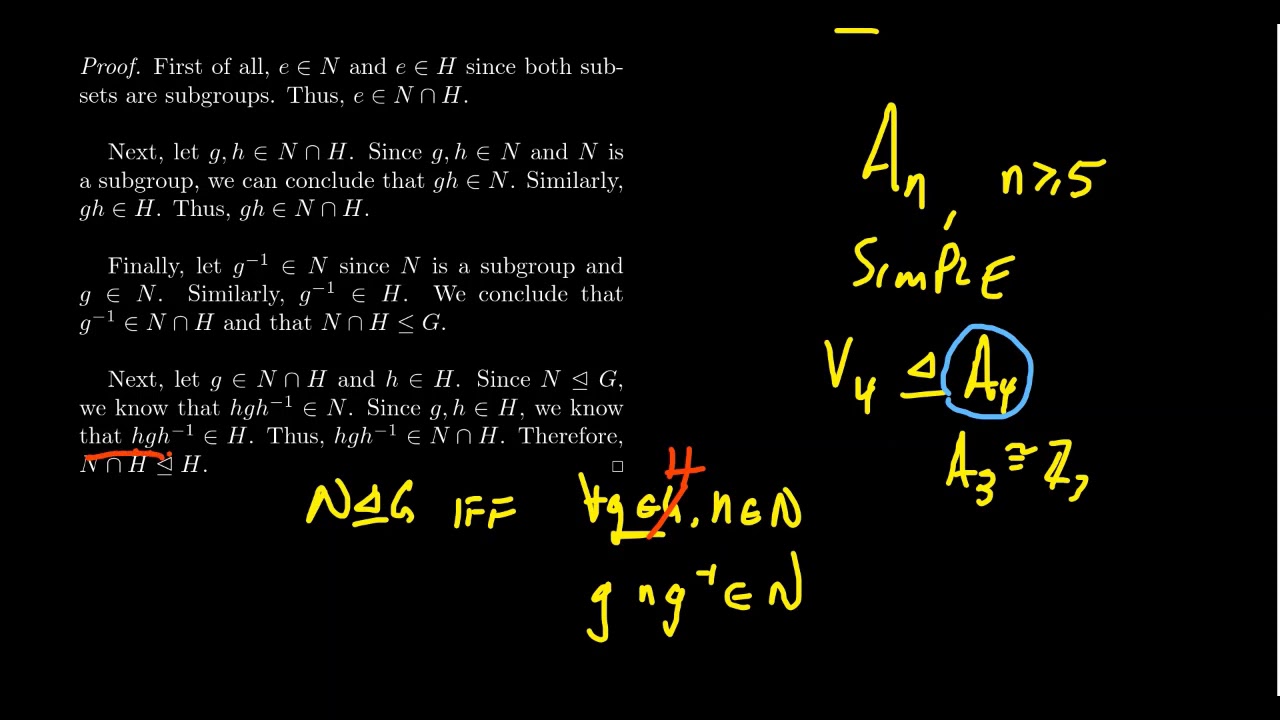 Proof. First of all, e ∈ N and e ∈ H since both sub-
sets are subgroups. Thus, e ∈ N ∩ H.
Next, let g, h ∈ N ∩ H. Since g, h ∈ N and N is
a subgroup, we can conclude that gh ∈ N. Similarly,
gh ∈ H. Thus, gh ∈ N ∩ H.
Finally, let g⁻¹ ∈ N since N is a subgroup and
g ∈ N. Similarly, g⁻¹ ∈ H. We conclude that
g⁻¹ ∈ N ∩ H and that N ∩ H ≤ G.
Next, let g ∈ N ∩ H and h ∈ H. Since N ⊴ G,
we know that hgh⁻¹ ∈ N. Since g, h ∈ H, we know
that hgh⁻¹ ∈ H. Thus, hgh⁻¹ ∈ N ∩ H. Therefore,
N ∩ H ⊴ H. □
H
N ⊴ G IFF ∀g ∈ , n ∈ N
g n g⁻¹ ∈ N
Aₙ, n ≥ 5
SIMPLE
V₄ ⊴ A₄
A₃ ≅ ℤ₃